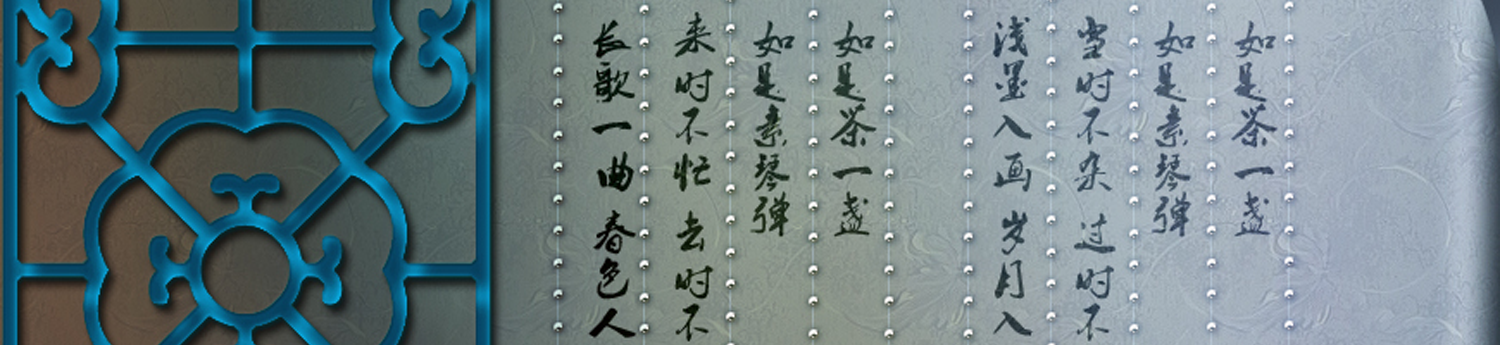 如是茶一盏
如是素琴弹
雪时不杂 过时不
浅墨入画 岁月入
如是茶一盏
如是素琴弹
来时不忙 去时不
长歌一曲 春色人